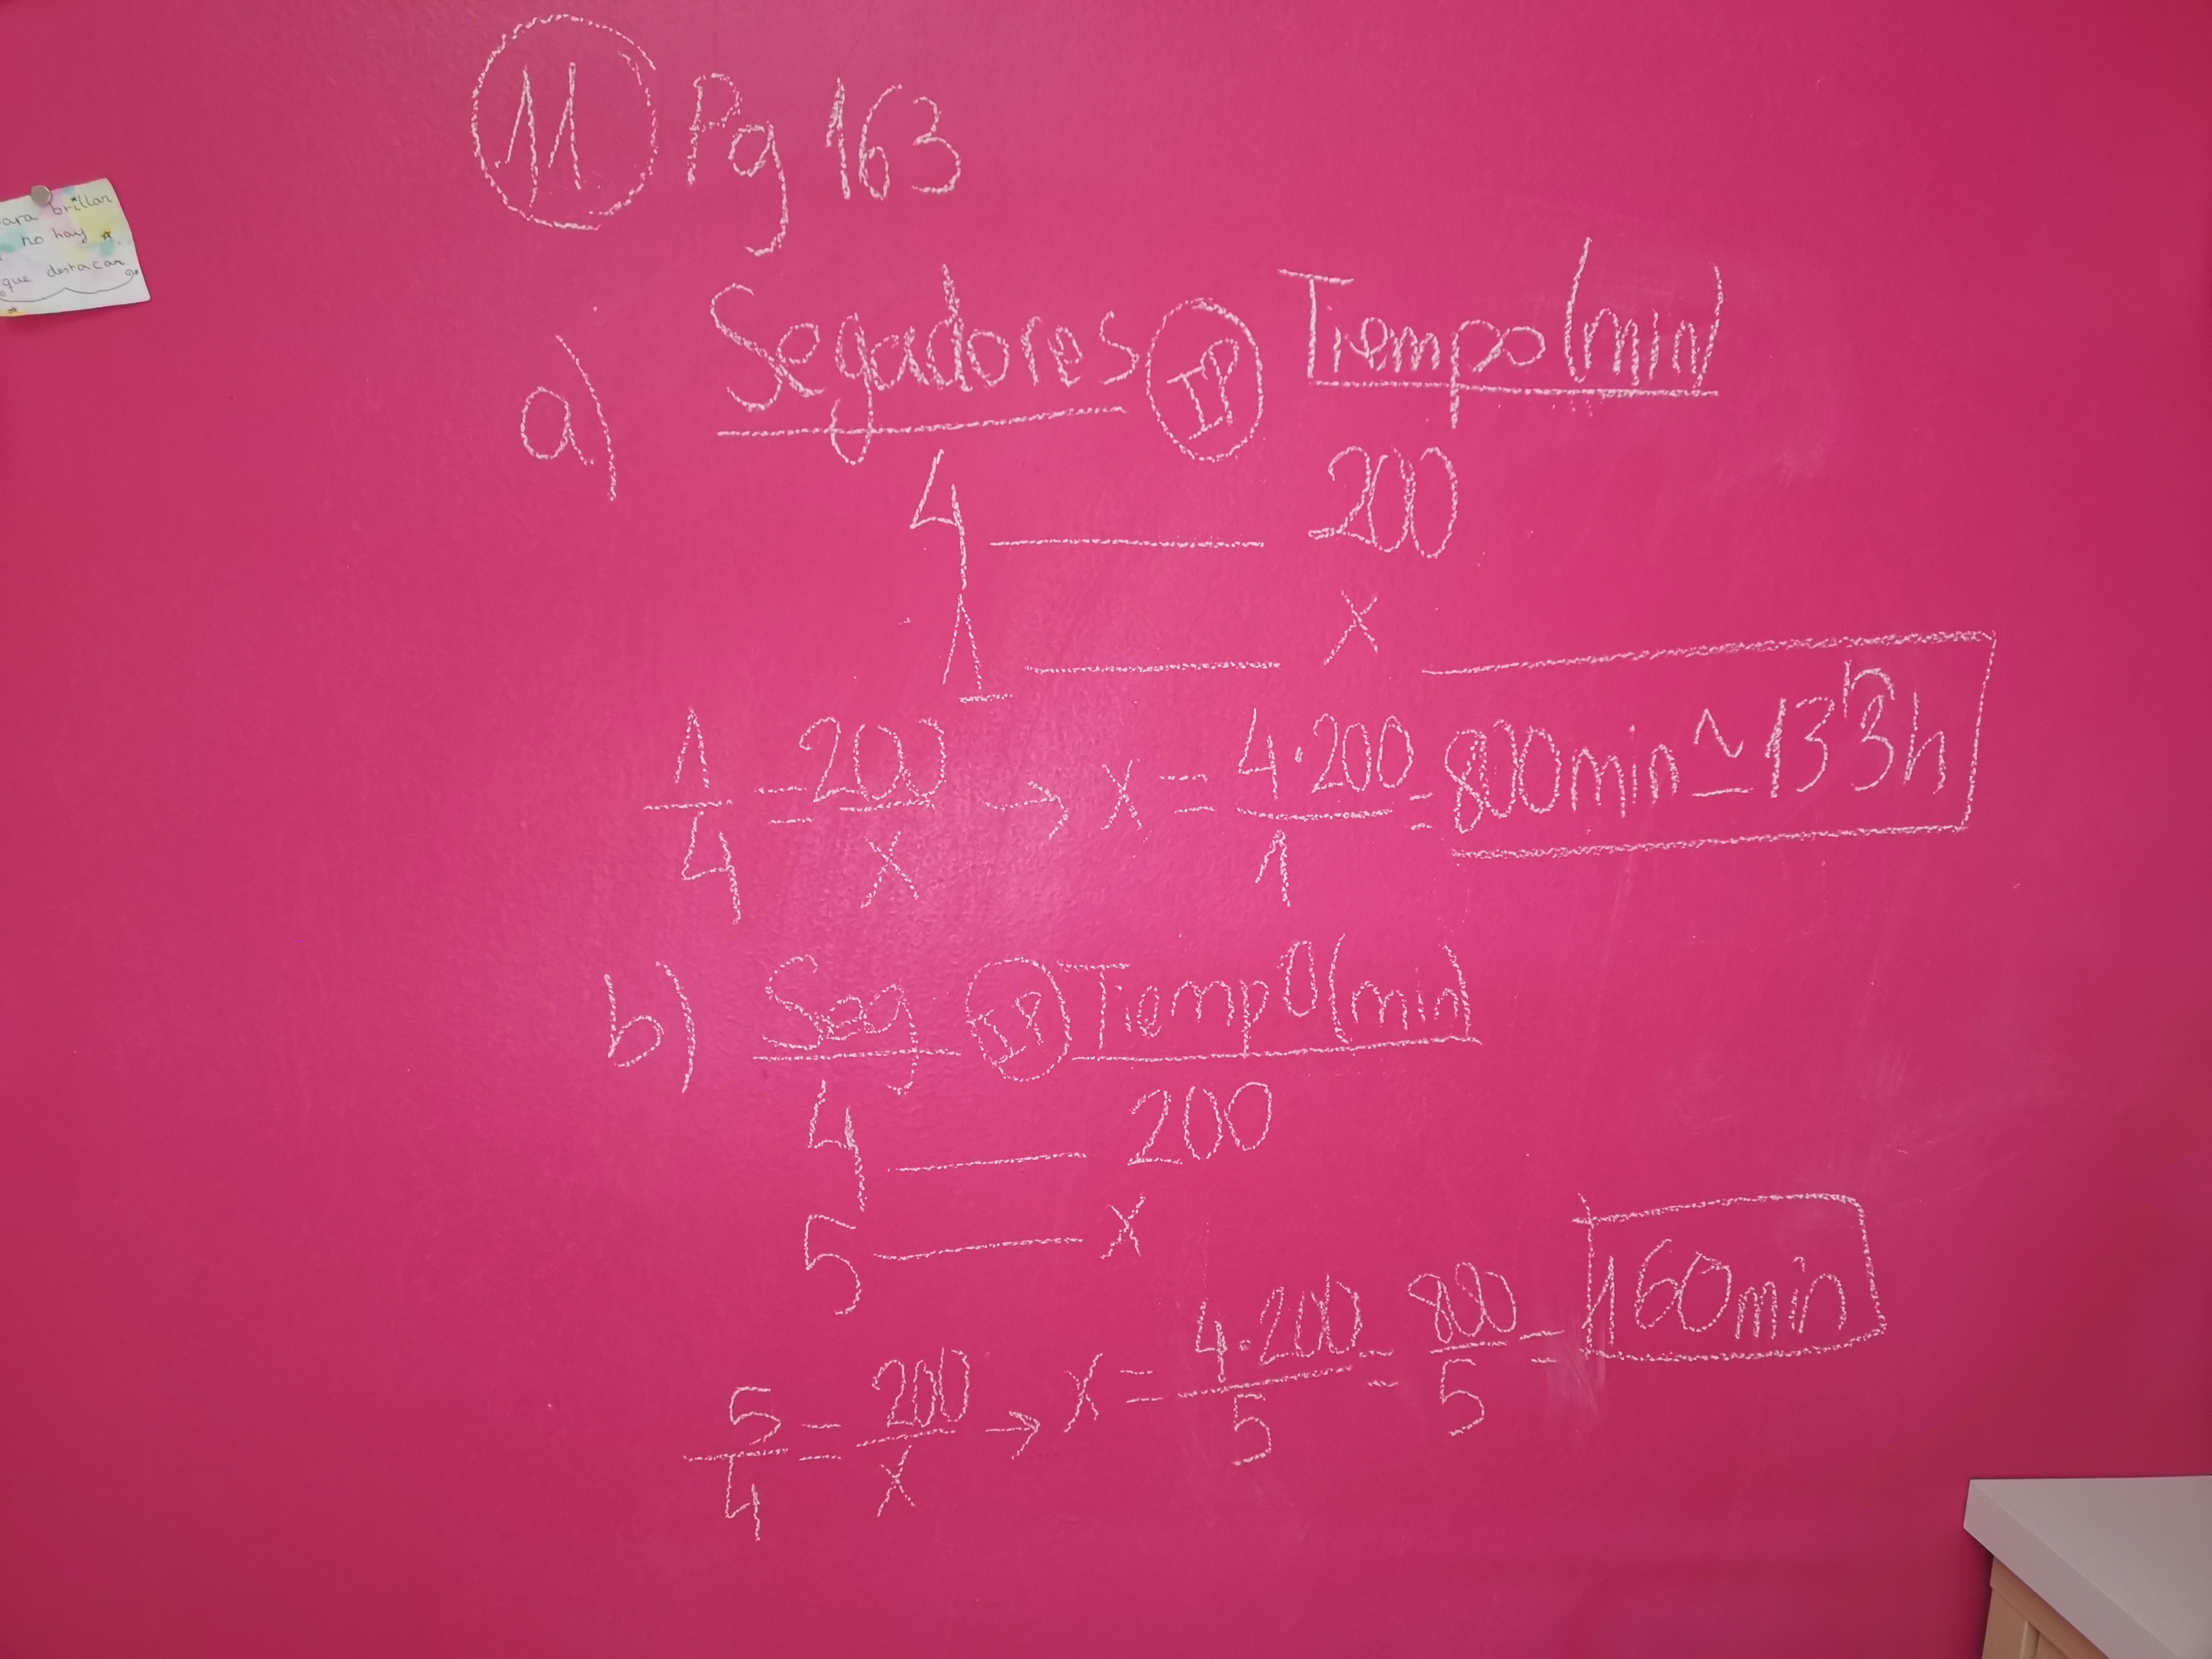 para brillar
no hay
que destacar
11 Pg 163
a) Segadores IP Tiempo (min)
4 — 200
1 — x
1/4 = 200/x → x = 4·200/1 = 800min ≃ 13'3h
b) Seg IP Tiempo (min)
4 — 200
5 — x
5/4 = 200/x → x = 4·200/5 = 800/5 = 160min